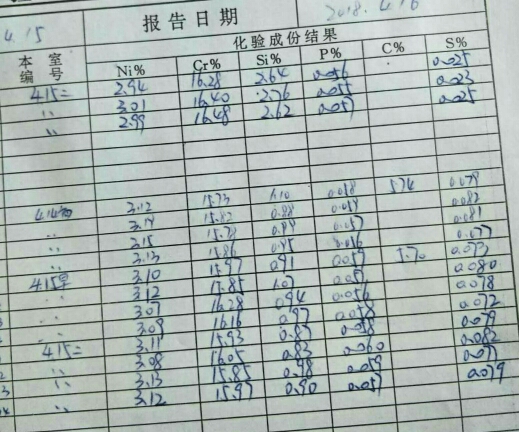 4.15 报告日期 2018.4.16
化验成份结果
本室编号 Ni% Cr% Si% P% C% S%
415二 2.94 16.28 2.64 0.056 0.025
〃 3.01 16.40 2.76 0.055 0.023
〃 2.99 16.48 2.62 0.057 0.025
3.12 15.73 1.10 0.058 5.74 0.079
〃 3.14 15.82 0.88 0.082
〃 3.15 15.78 0.99 0.057 0.081
〃 3.13 15.86 0.95 0.056 0.077
3.10 15.97 0.91 0.057 5.70 0.073
〃 3.12 15.85 1.07 0.057 0.080
〃 3.07 16.28 0.94 0.056 0.078
〃 3.09 16.16 0.97 0.058 0.072
415二 3.11 15.93 0.87 0.058 0.079
〃 3.08 16.05 0.83 0.060 0.082
〃 3.13 15.85 0.98 0.059 0.077
〃 3.12 15.97 0.90 0.057 0.079